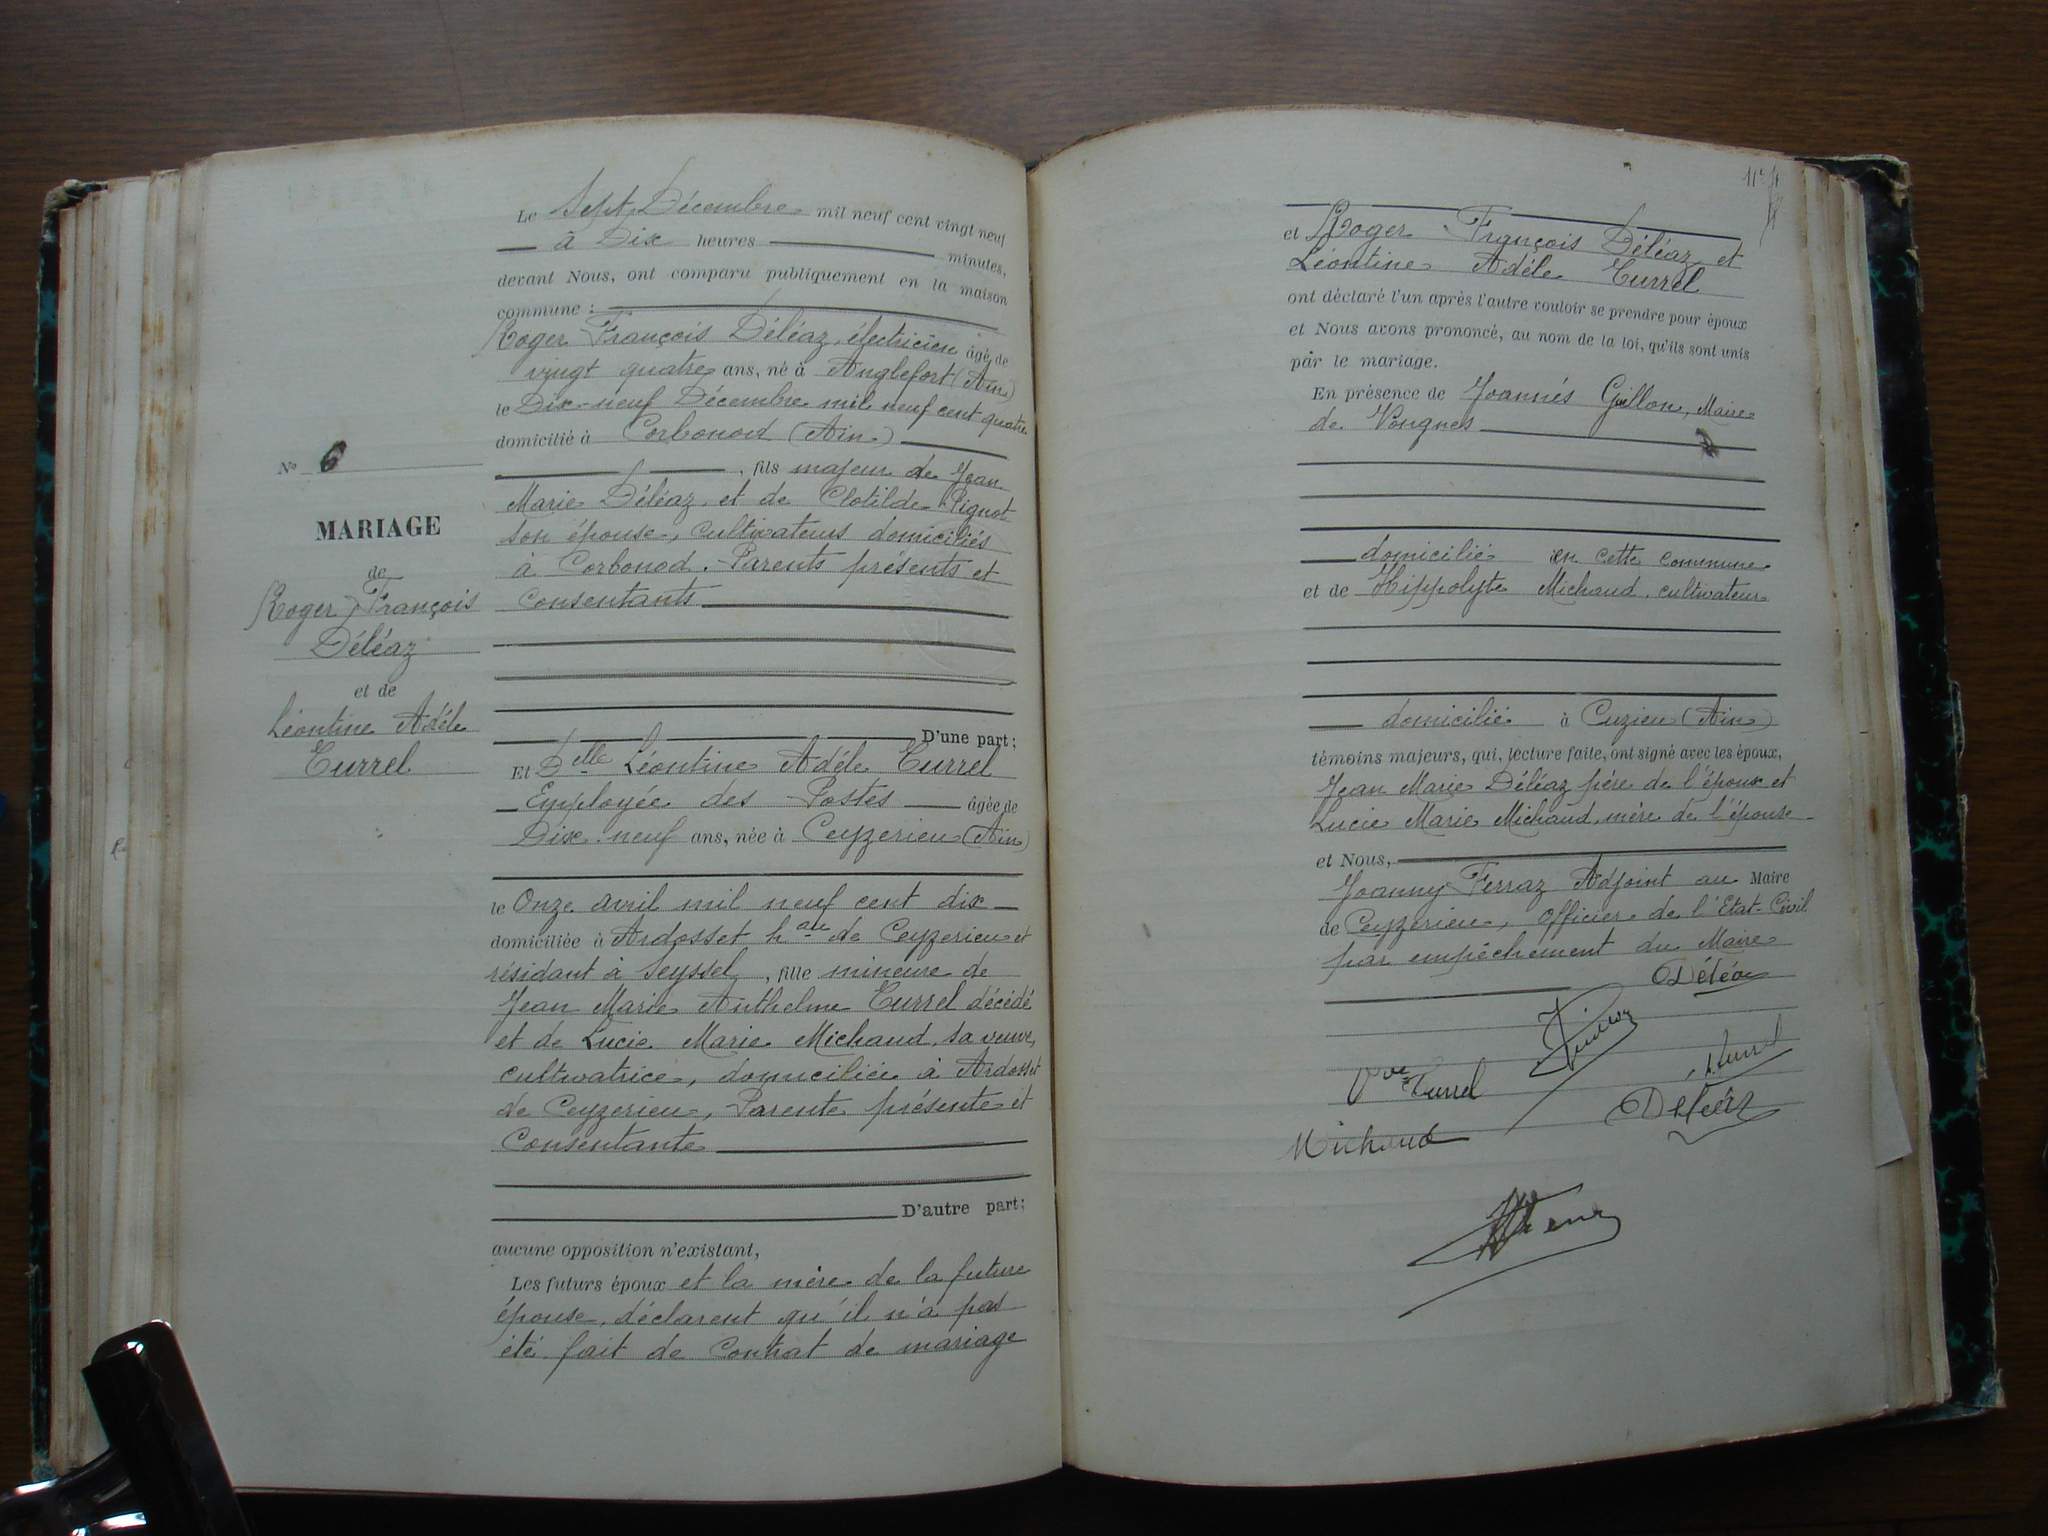 Le Sept Décembre mil neuf cent vingt neuf
à Dix heures minutes,
devant Nous, ont comparu publiquement en la maison
commune :
Roger François Déléaz, électricien âgé de
vingt quatre ans, né à Anglefort (Ain)
le Dix-neuf Décembre mil neuf cent quatre
domicilié à Corbonod (Ain)
, fils majeur de Jean
Marie Déléaz et de Clotilde Pignot
son épouse, cultivateurs domiciliés
à Corbonod. Parents présents et
consentants
D'une part;
Et Delle Léontine Adéle Turrel
Employée des Postes âgée de
Dix-neuf ans, née à Ceyzerieu (Ain)
le Onze avril mil neuf cent dix
domiciliée à Ardosset hau de Ceyzerieu et
résidant à Seyssel, fille mineure de
Jean Marie Anthelme Turrel décédé
et de Lucie Marie Michaud, sa veuve,
cultivatrice, domiciliée à Ardosset
de Ceyzerieu, Parente présente et
Consentante
D'autre part;
aucune opposition n'existant,
Les futurs époux et la mère de la future
épouse, déclarent qu'il n'a pas
été fait de Contrat de mariage
No 6
MARIAGE
de
Roger François
Déléaz
et de
Léontine Adéle
Turrel
et Roger François Déléaz et
Léontine Adéle Turrel
ont déclaré l'un après l'autre vouloir se prendre pour époux
et Nous avons prononcé, au nom de la loi, qu'ils sont unis
par le mariage.
En présence de Joannés Guillon, Maire
de Vongnes
domicilié en cette commune
et de Hippolyte Michaud, cultivateur
domicilié à Cuzieu (Ain)
témoins majeurs, qui, lecture faite, ont signé avec les époux,
Jean Marie Déléaz père de l'époux et
Lucie Marie Michaud, mère de l'épouse
et Nous,
Joanny Ferraz Adjoint au Maire
de Ceyzerieu, Officier de l'Etat-Civil
par empêchement du Maire
Déléaz
Vve Turrel
Turrel
Déléaz
Michaud